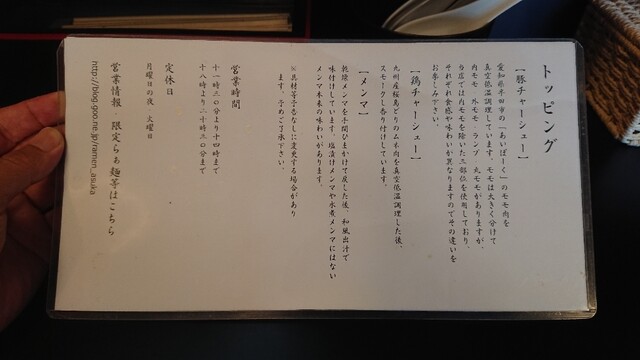 トッピング
【豚チャーシュー】
愛知県半田市の「あいぽーく」のモモ肉を
真空低温調理しています。モモは大きく分けて
内モモ、外モモ、ランプ、丸モモがありますが、
当店では内モモを除いた三部位を使用しており、
それぞれ食感や味わいが異なりますのでその違いを
お楽しみ下さい。
【鶏チャーシュー】
九州産桜島どりのムネ肉を真空低温調理した後、
スモークし香り付けしています。
【メンマ】
乾燥メンマを手間ひまかけて戻した後、和風出汁で
味付けしています。塩漬けメンマや水煮メンマにはない
メンマ本来の味わいがあります。
※具材等予告なしに変更する場合があり
ます。予めご了承下さい。
営業時間
十一時三〇分より十四時まで
十八時より二十時三〇分まで
定休日
月曜日の夜、火曜日
営業情報・限定らぁ麺等はこちら
http://blog.goo.ne.jp/ramen_asuka